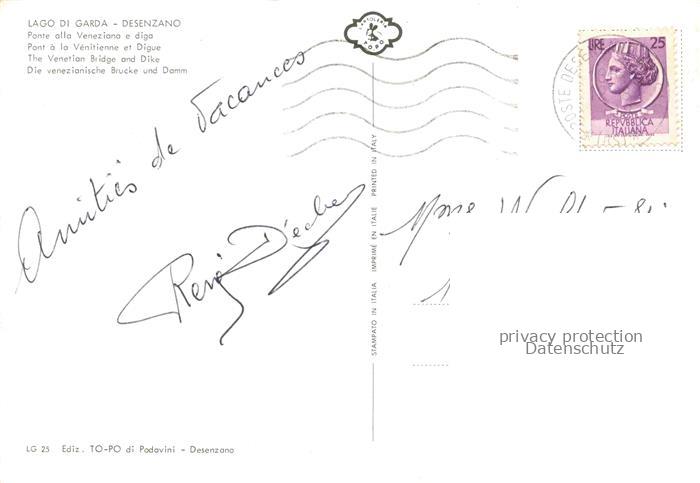 LAGO DI GARDA - DESENZANO
Ponte alla Veneziana e diga
Pont à la Vénitienne et Digue
The Venetian Bridge and Dike
Die venezianische Brucke und Damm
CARTOLERIA
TOPO
LIRE 25
POSTE
REPVBBLICA
ITALIANA
POSTE DESE
Amitiés de Vacances
René
STAMPATO IN ITALIA IMPRIMÉ EN ITALIE PRINTED IN ITALY
Mme
privacy protection
Datenschutz
LG 25 Ediz. TO-PO di Podavini - Desenzano